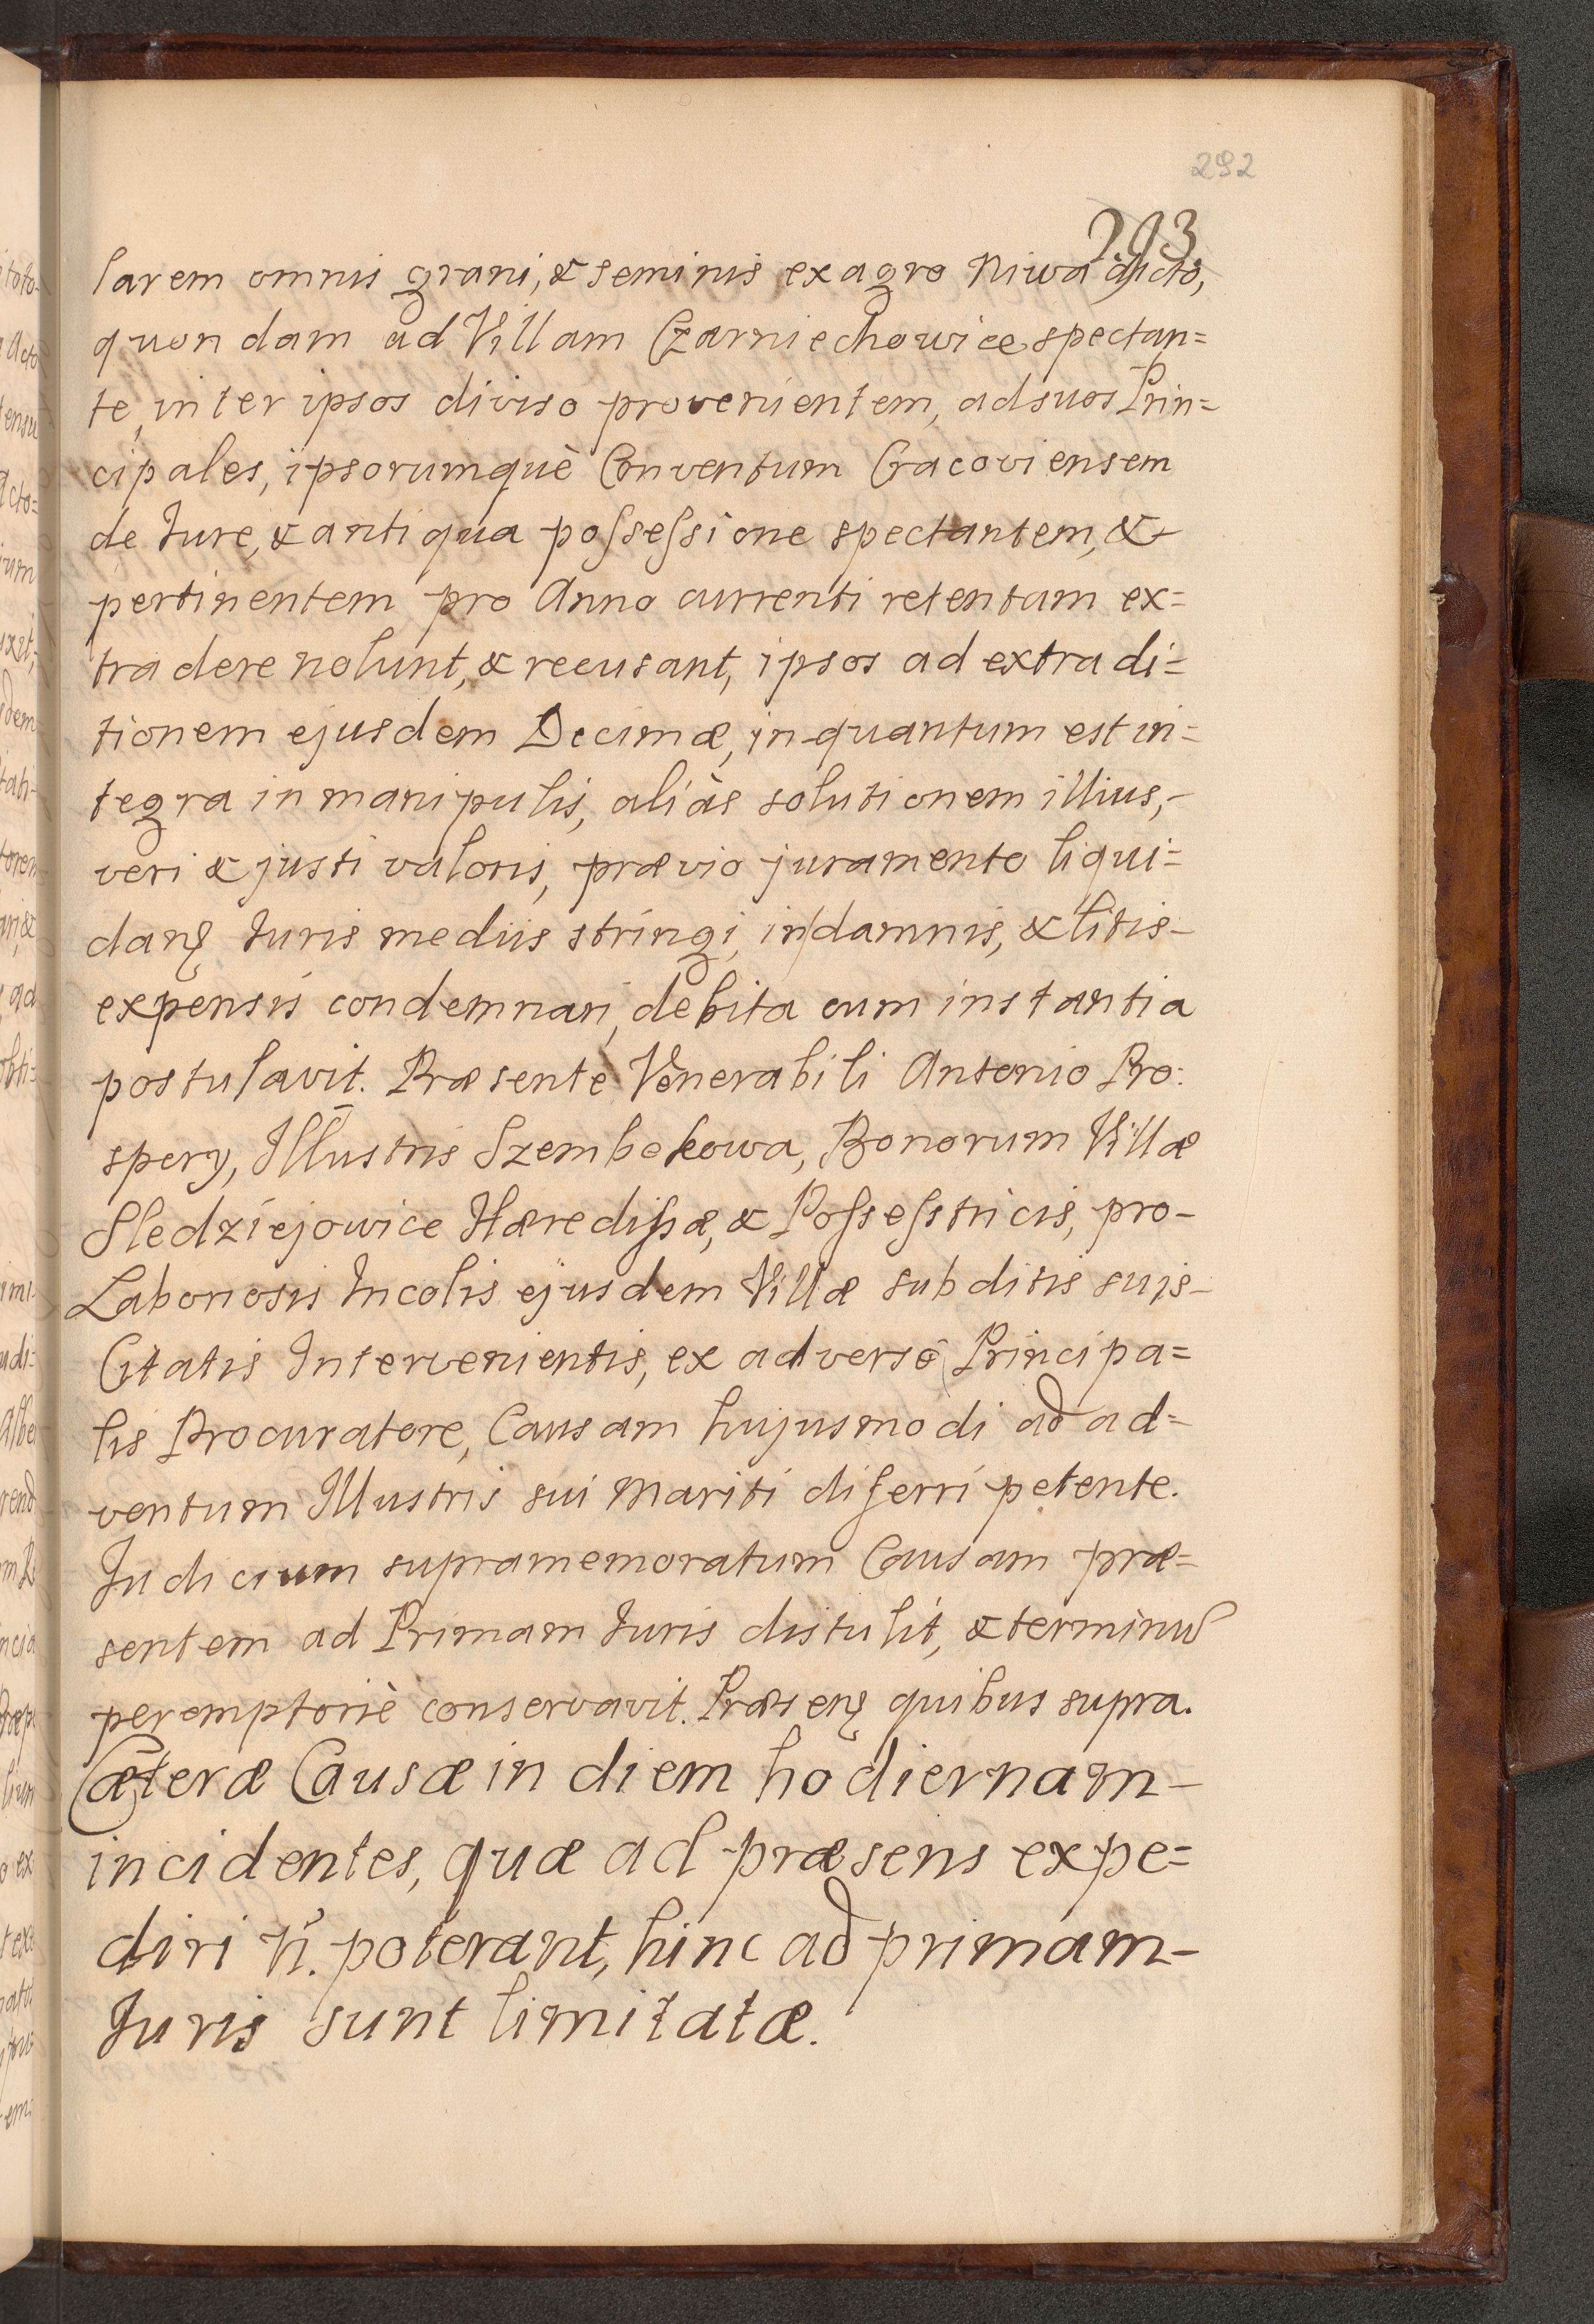 292
293
larem omnis grani, & seminis ex agro Niwa dicto,
quondam ad Villam Czarniechowice spectan=
te, inter ipsos diviso provenientem, ad suos Prin=
cipales, ipsorumquè Conventum Cracoviensem
de Jure, & antiqua poſseſsione spectantem, &
pertinentem pro Anno currenti retentam ex=
tradere nolunt, & recusant, ipsos ad extradi=
tionem ejusdem Decimæ, in quantum est in=
tegra in manipulis, aliàs solutionem illius,-
veri & justi valoris, prævio juramento liqui=
danđ Juris mediis stringi, in damnis, & litis-
expensis condemnari, debita cum instantia
postulavit. Præsente Venerabili Antonio Pro:
spery, Illūstris Szembekowa, Bonorum Villæ
Sledziejowice Hærediſsæ, & Poſseſstricis, pro-
Laboriosis Incolis ejusdem Villæ subditis suis-
Citatis Intervenientis, ex adversô Principa=
lis Procuratore, Causam hujusmodi ad ad=
ventum Illustris sui Mariti differri petente.
Judicium supramemoratum Causam præ=
sentem ad Primam Juris distulit, & terminū
peremptoriè conservavit. Præsenꝭ quibus supra.
Cæteræ Causæ in diem hodiernam-
incidentes, quæ ad præsens expe=
diri ñ. poterant, hinc ad primam-
Juris sunt limitatæ.